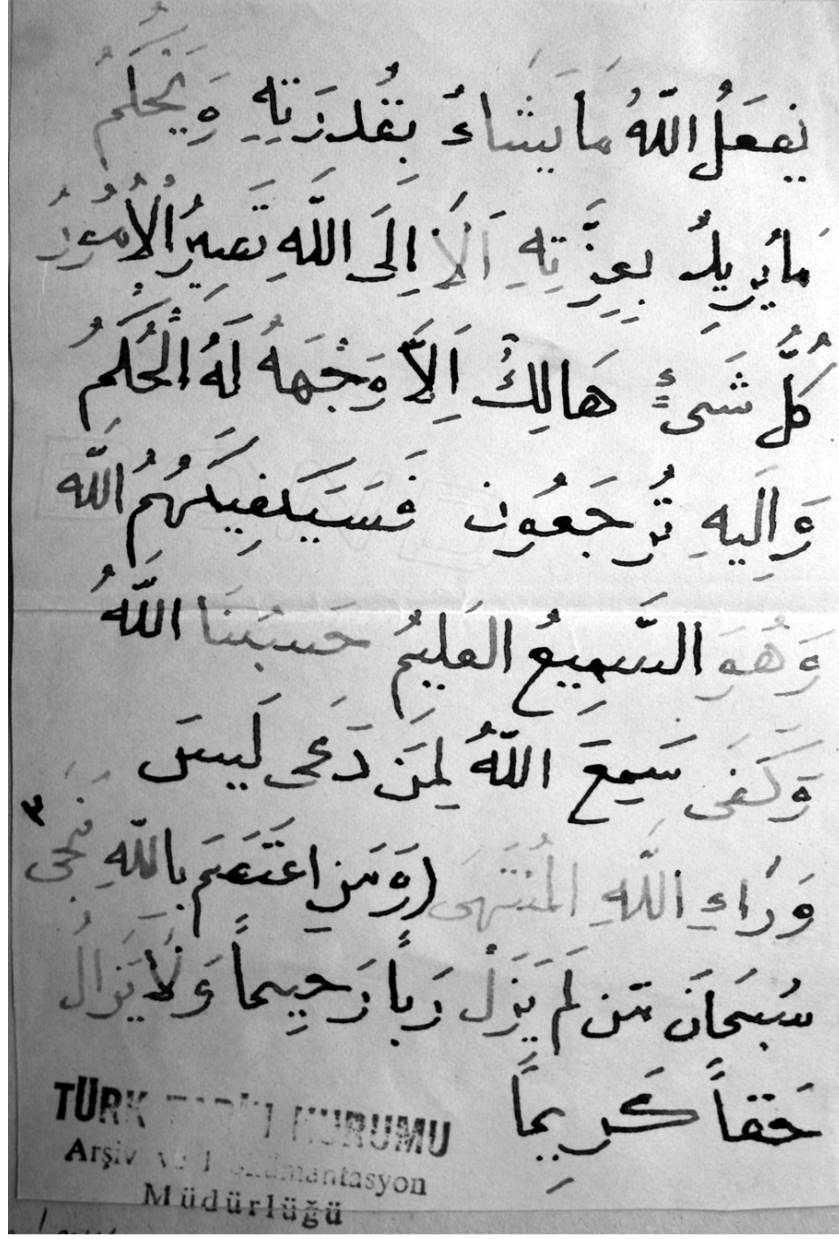 يَفعَلُ اللّٰهُ مَا يَشَاءُ بِقُدرَتِهِ وَيَحْكُمُ
مَا يُرِيدُ بِعِزَّتِهِ اَلَا اِلَى اللّٰهِ تَصِيرُ الْاُمُورُ
كُلُّ شَىْءٍ هَالِكٌ اِلَّا وَجْهَهُ لَهُ الْحُكْمُ
وَاِلَيهِ تُرجَعُون فَسَيَكفِيكَهُمُ اللّٰه
وَهُوَ السَّمِيعُ العَلِيمُ حَسبُنَا اللّٰهُ
وَكَفَى سَمِعَ اللّٰهُ لِمَن دَعَى لَيسَ
وَرَاءِ اللّٰهِ المُنتَهَى (وَمَنِ اعتَصَمَ بِاللّٰهِ نَجَى ٣
سُبحَانَ مَن لَم يَزَلْ رَباً رَحِيماً وَلَا يَزَالُ
حَقاً كَرِيماً
TÜRK TARİH KURUMU
Arşiv ve Dokümantasyon
Müdürlüğü